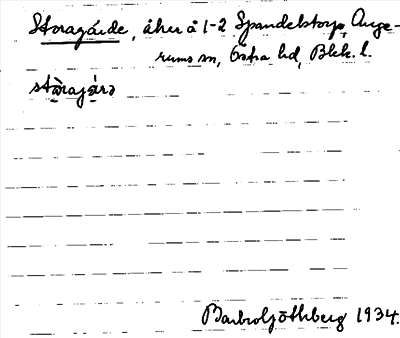 Storagärde, åker å 1-2 Spandelstorp, Auge-
rums sn, Östra hd, Blek. l.
stòragä́rə
Barbro Göthberg 1934.